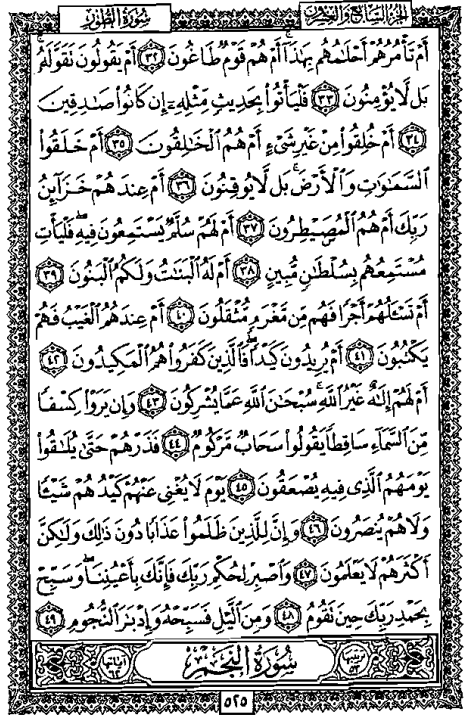 سُورَةُ الطُّورِ الجُزْءُ السَّابِعُ وَالعِشْرُونَ
أَمْ تَأْمُرُهُمْ أَحْلَٰمُهُم بِهَٰذَآ أَمْ هُمْ قَوْمٌ طَاغُونَ ٣٢ أَمْ يَقُولُونَ تَقَوَّلَهُۥ
بَل لَّا يُؤْمِنُونَ ٣٣ فَلْيَأْتُوا۟ بِحَدِيثٍ مِّثْلِهِۦٓ إِن كَانُوا۟ صَٰدِقِينَ
٣٤ أَمْ خُلِقُوا۟ مِنْ غَيْرِ شَىْءٍ أَمْ هُمُ ٱلْخَٰلِقُونَ ٣٥ أَمْ خَلَقُوا۟
ٱلسَّمَٰوَٰتِ وَٱلْأَرْضَ ۚ بَل لَّا يُوقِنُونَ ٣٦ أَمْ عِندَهُمْ خَزَآئِنُ
رَبِّكَ أَمْ هُمُ ٱلْمُصَۣيْطِرُونَ ٣٧ أَمْ لَهُمْ سُلَّمٌ يَسْتَمِعُونَ فِيهِ ۖ فَلْيَأْتِ
مُسْتَمِعُهُم بِسُلْطَٰنٍ مُّبِينٍ ٣٨ أَمْ لَهُ ٱلْبَنَٰتُ وَلَكُمُ ٱلْبَنُونَ ٣٩
أَمْ تَسْـَٔلُهُمْ أَجْرًا فَهُم مِّن مَّغْرَمٍ مُّثْقَلُونَ ٤٠ أَمْ عِندَهُمُ ٱلْغَيْبُ فَهُمْ
يَكْتُبُونَ ٤١ أَمْ يُرِيدُونَ كَيْدًا ۖ فَٱلَّذِينَ كَفَرُوا۟ هُمُ ٱلْمَكِيدُونَ ٤٢
أَمْ لَهُمْ إِلَٰهٌ غَيْرُ ٱللَّهِ ۚ سُبْحَٰنَ ٱللَّهِ عَمَّا يُشْرِكُونَ ٤٣ وَإِن يَرَوْا۟ كِسْفًا
مِّنَ ٱلسَّمَآءِ سَاقِطًا يَقُولُوا۟ سَحَابٌ مَّرْكُومٌ ٤٤ فَذَرْهُمْ حَتَّىٰ يُلَٰقُوا۟
يَوْمَهُمُ ٱلَّذِى فِيهِ يُصْعَقُونَ ٤٥ يَوْمَ لَا يُغْنِى عَنْهُمْ كَيْدُهُمْ شَيْـًٔا
وَلَا هُمْ يُنصَرُونَ ٤٦ وَإِنَّ لِلَّذِينَ ظَلَمُوا۟ عَذَابًا دُونَ ذَٰلِكَ وَلَٰكِنَّ
أَكْثَرَهُمْ لَا يَعْلَمُونَ ٤٧ وَٱصْبِرْ لِحُكْمِ رَبِّكَ فَإِنَّكَ بِأَعْيُنِنَا ۖ وَسَبِّحْ
بِحَمْدِ رَبِّكَ حِينَ تَقُومُ ٤٨ وَمِنَ ٱلَّيْلِ فَسَبِّحْهُ وَإِدْبَٰرَ ٱلنُّجُومِ ٤٩
ترتيبها ٥٣ سُورَةُ النَّجْمِ آياتها ٦٢
٥٢٥